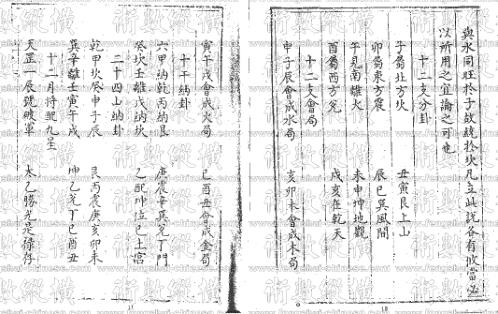 與水同旺於子故統於坎凡立此說各有攸當必
以所用之宜論之可也
十二支分卦
子屬北方坎 丑寅艮上山
卯屬東方震 辰巳巽風間
午見南離火 未申坤地觀
酉屬西方兌 戌亥在乾天
十二支會局
申子辰會成水局 亥卯未會成木局
寅午戌會成火局 巳酉丑會成金局
十干納卦
六甲納乾丙納艮 庚震辛巽兌丁門
癸坎壬離戊納坎 乙配坤位己上宮
二十四山納卦
乾甲坎癸申子辰 艮丙震庚亥卯未
巽辛離壬寅午戌 坤乙兌丁巳酉丑
十二月將
天罡一辰號破軍 太乙勝光是祿存
18
術數縱橫